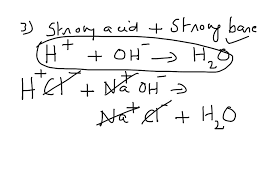 3) Strong acid + Strong base
H⁺ + OH⁻ → H₂O
H⁺Cl⁻ + Na⁺OH⁻ →
Na⁺Cl⁻ + H₂O